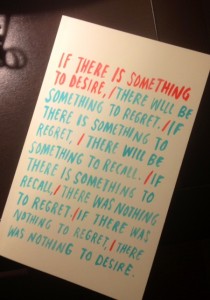 IF THERE IS SOMETHING
TO DESIRE, / THERE WILL BE
SOMETHING TO REGRET. / IF
THERE IS SOMETHING TO
REGRET, / THERE WILL BE
SOMETHING TO RECALL. / IF
THERE IS SOMETHING TO
RECALL, / THERE WAS NOTHING
TO REGRET. / IF THERE WAS
NOTHING TO REGRET, / THERE
WAS NOTHING TO DESIRE.